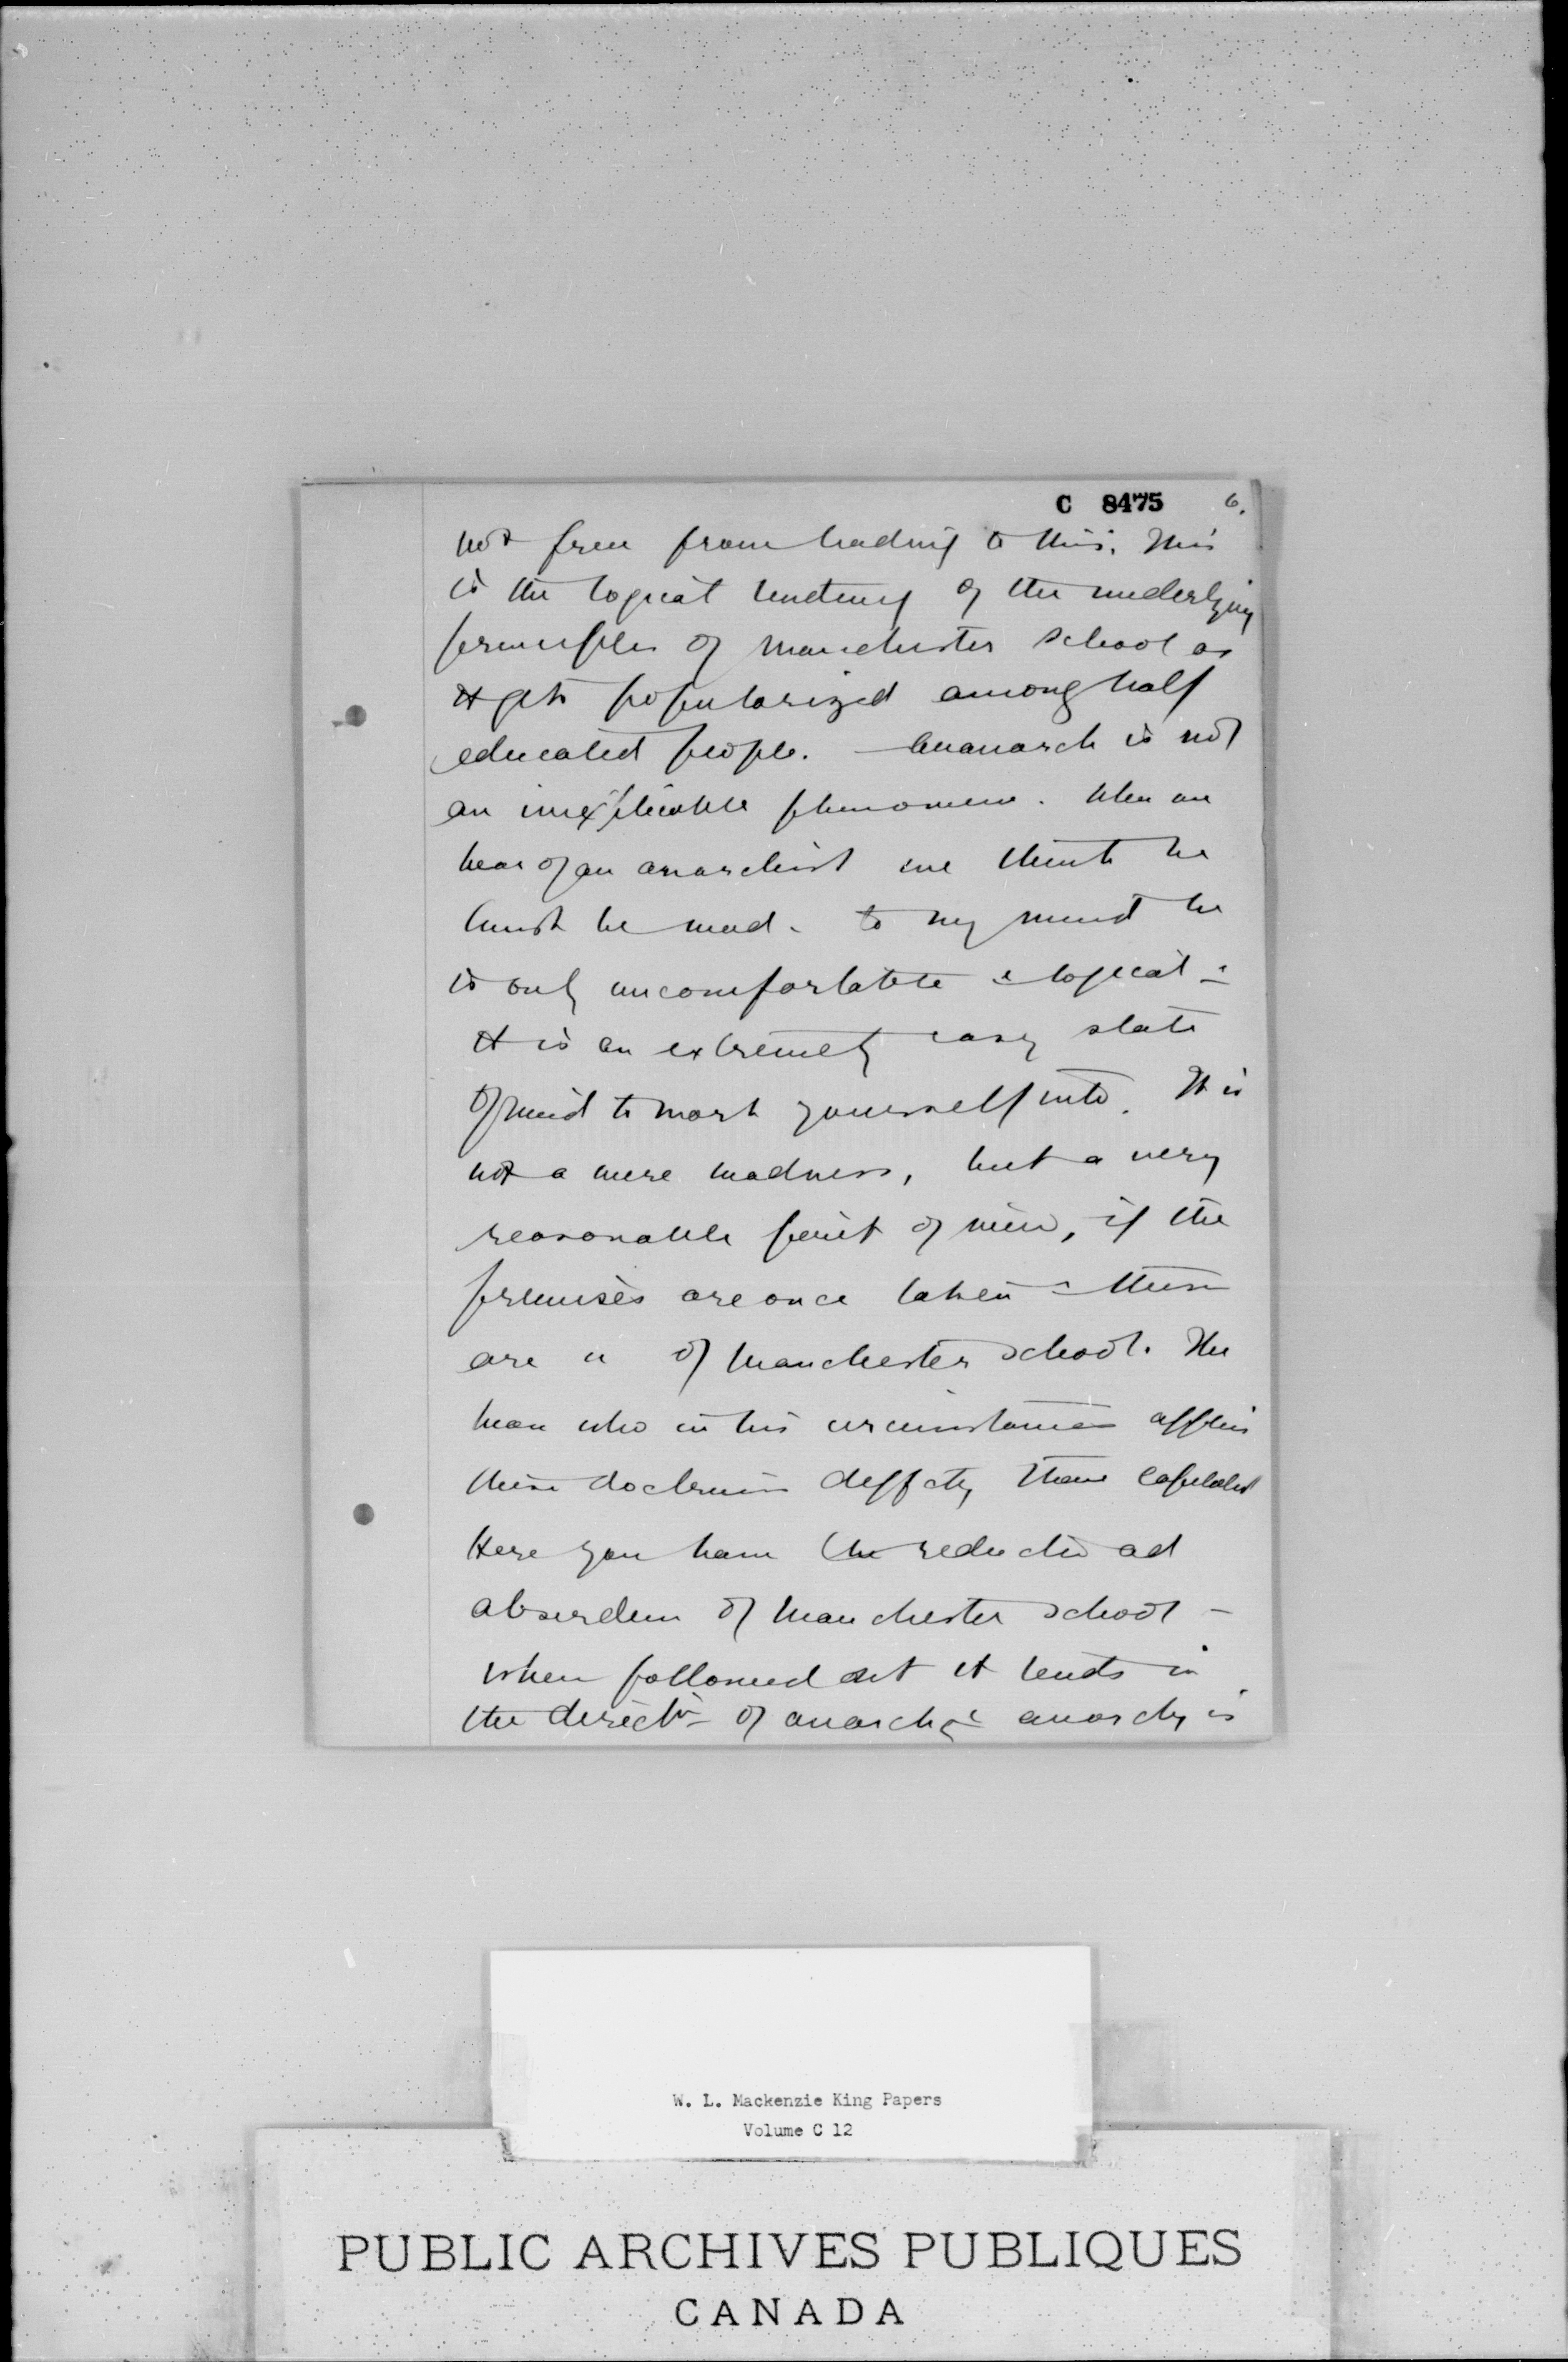 C 8475 6.
not free from leading to this. This
is the logical tendency of the underlying
principles of Manchester School as
it gets popularized among half
educated people. — anarch is not
an inexplicable phenomena. When we
hear of an anarchist we think he
must be mad. to my mind he
is only uncomfortable & logical -
It is an extremely easy state
of mind to work yourself into. It is
not a mere madness, but a very
reasonable point of view, if the
premises are once taken & these
are " of Manchester School. The
man who in his circumstances applies
these doctrines diff'tly than capitalist
Here you have the reductio ad
absurdum of Manchester School -
when followed out it tends in
the direct'n of anarchy & anarchy is
W. L. Mackenzie King Papers
Volume C 12
PUBLIC ARCHIVES PUBLIQUES
CANADA